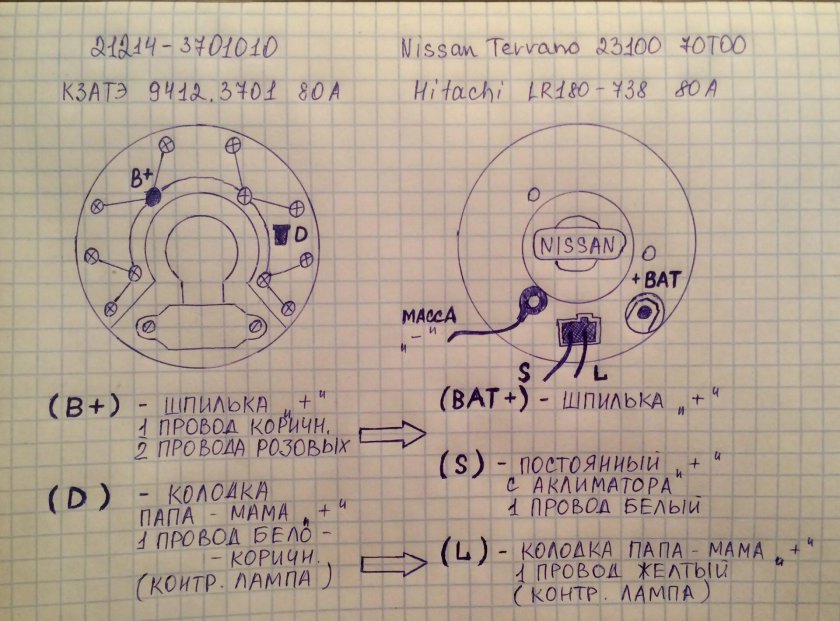 21214-3701010
КЗАТЭ 9412.3701 80А
Nissan Terrano 23100 70T00
Hitachi LR180-738 80A
B+
D
NISSAN
+BAT
МАССА
„-"
S
L
(B+) - ШПИЛЬКА „+"
1 ПРОВОД КОРИЧН.
2 ПРОВОДА РОЗОВЫХ
(D) - КОЛОДКА
ПАПА - МАМА „+"
1 ПРОВОД БЕЛО -
- КОРИЧН.
(КОНТР. ЛАМПА)
(BAT+) - ШПИЛЬКА „+"
(S) - ПОСТОЯННЫЙ „+"
С АКЛИМАТОРА
1 ПРОВОД БЕЛЫЙ
(L) - КОЛОДКА ПАПА - МАМА „+"
1 ПРОВОД ЖЕЛТЫЙ
(КОНТР. ЛАМПА)